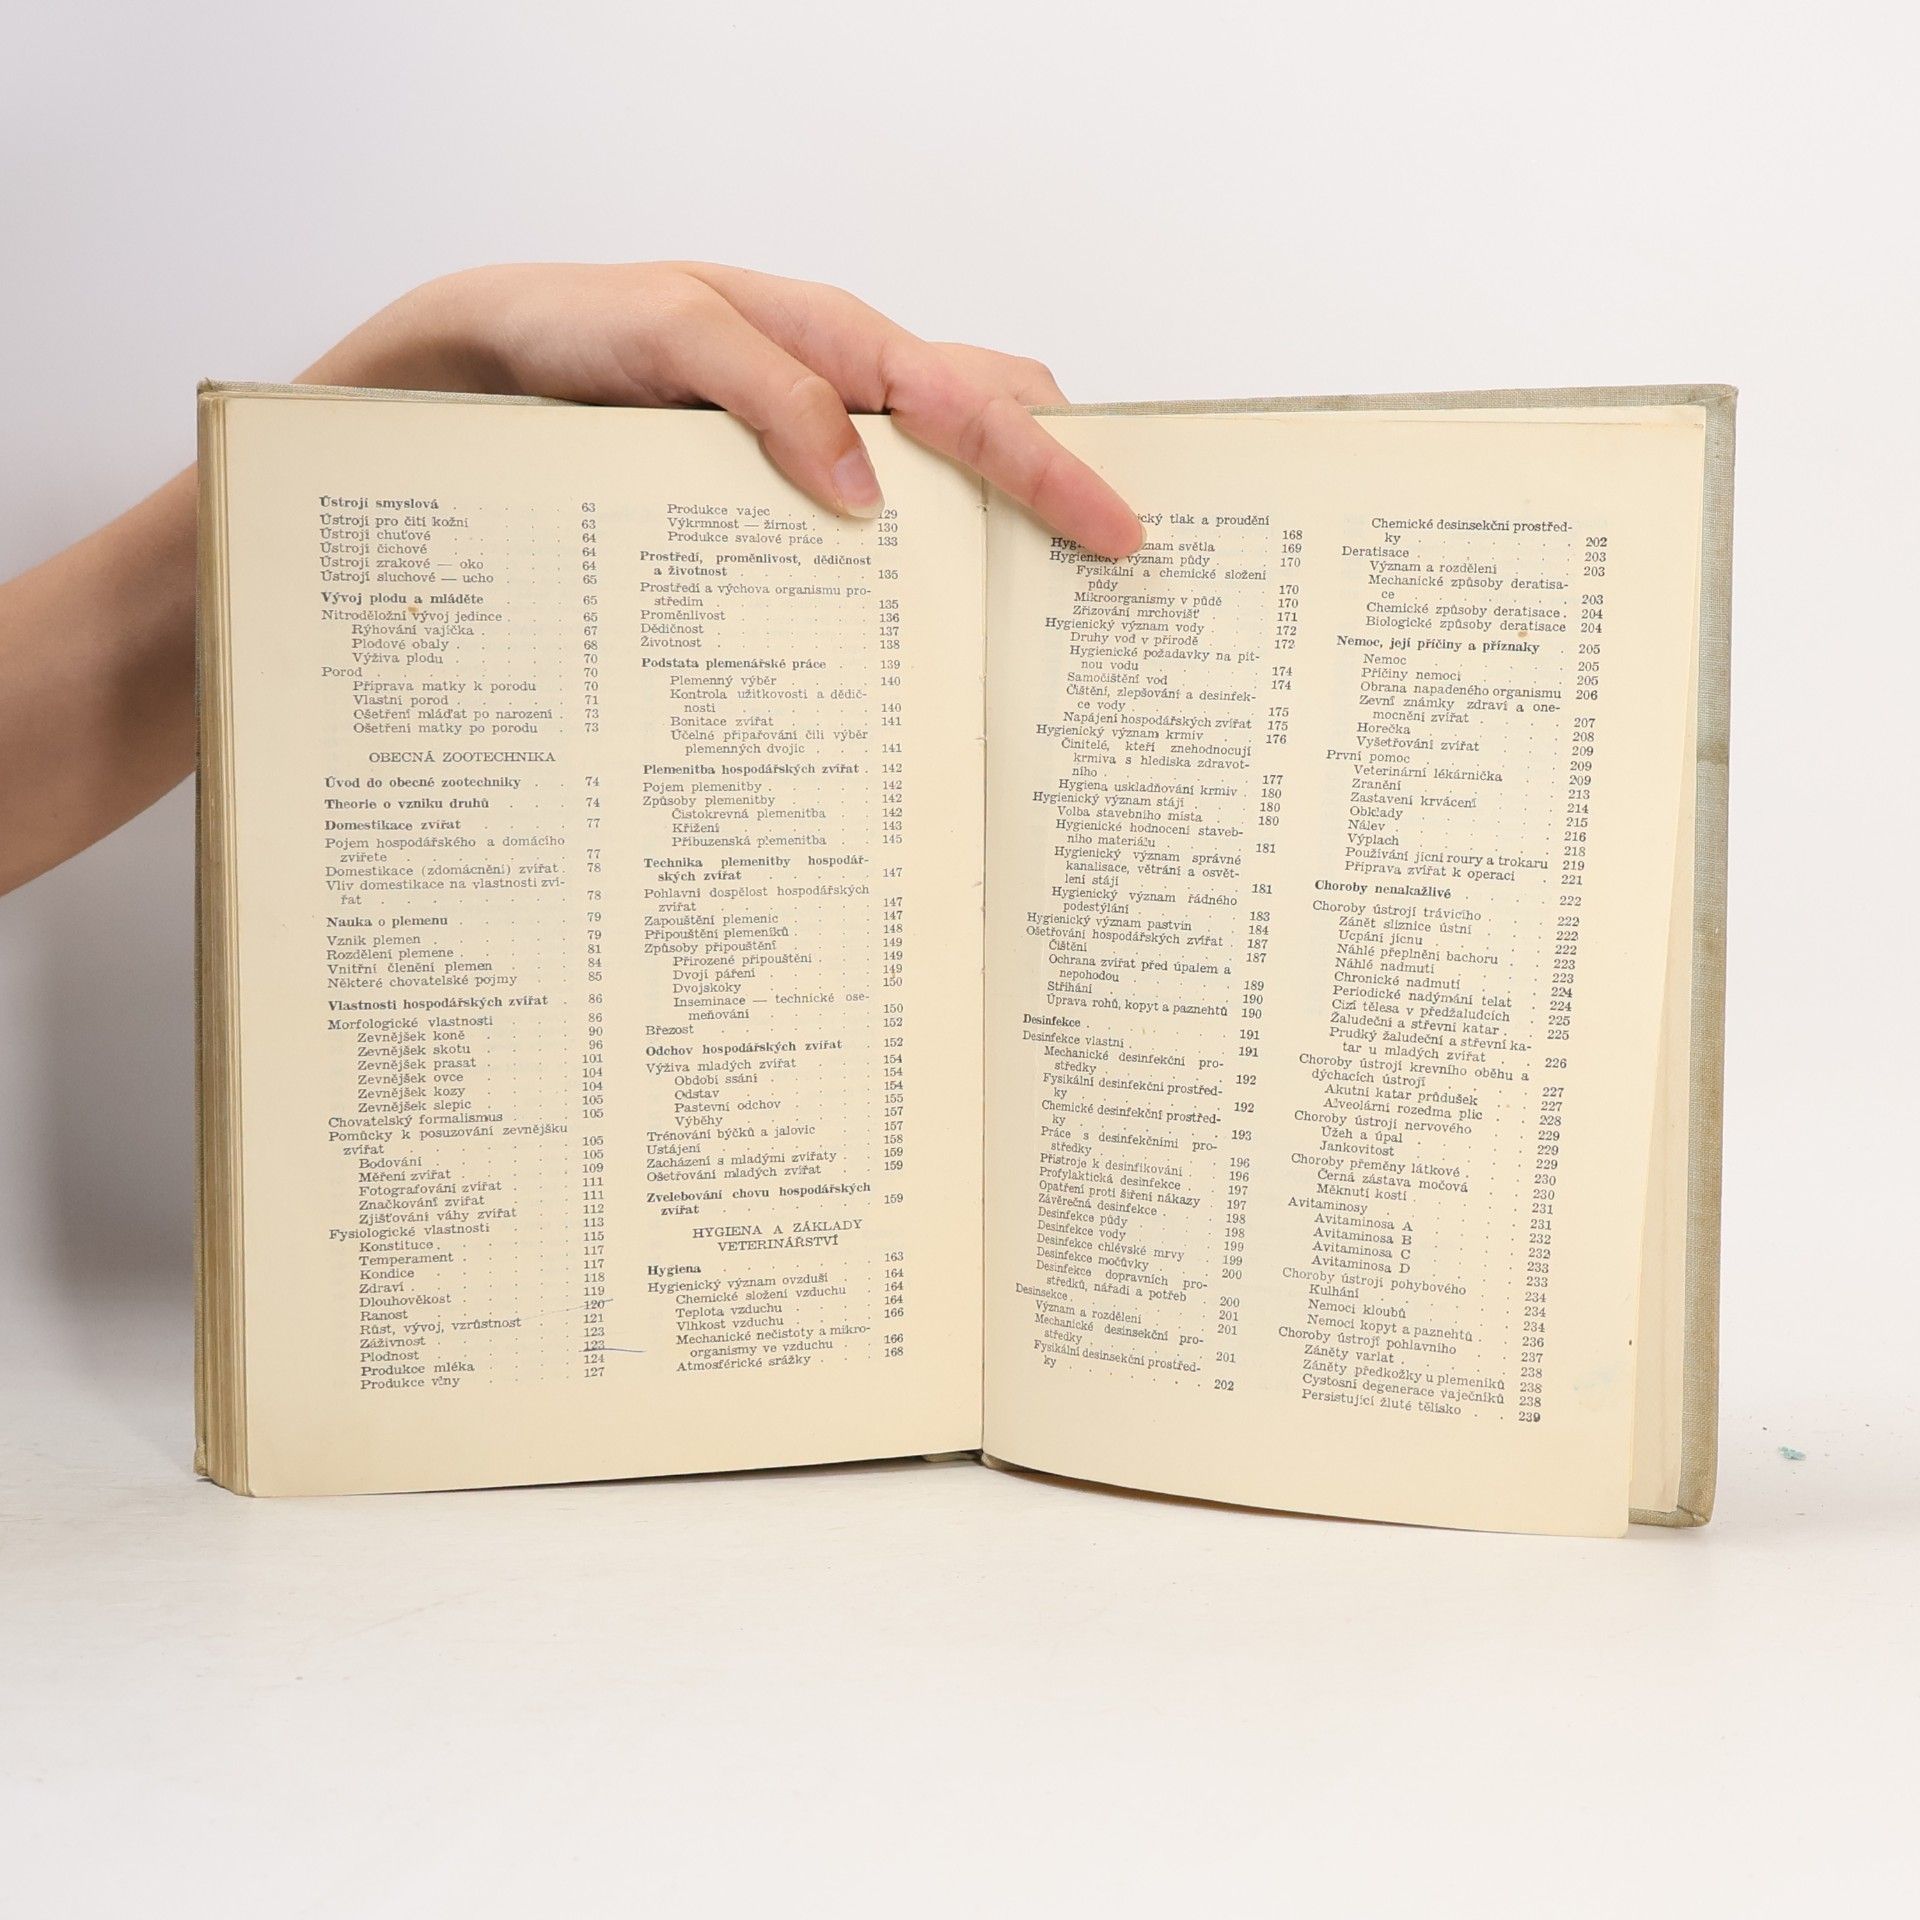 Ústrojí smyslová . . . . . 63
Ústrojí pro čití kožní . . . 63
Ústrojí chuťové . . . . . 64
Ústrojí čichové . . . . . 64
Ústrojí zrakové — oko . . . 64
Ústrojí sluchové — ucho . . . 65
Vývoj plodu a mláděte . . . 65
Nitroděložní vývoj jedince . . . 65
Rýhování vajíčka . . . . 67
Plodové obaly . . . . . 68
Výživa plodu . . . . . 70
Porod . . . . . . . 70
Příprava matky k porodu . 70
Vlastní porod . . . . . 71
Ošetření mláďat po narození . 73
Ošetření matky po porodu . 73
OBECNÁ ZOOTECHNIKA
Úvod do obecné zootechniky . . 74
Theorie o vzniku druhů . . . 74
Domestikace zvířat . . . . 77
Pojem hospodářského a domácího
zvířete . . . . . . 77
Domestikace (zdomácnění) zvířat . 78
Vliv domestikace na vlastnosti zví-
řat . . . . . . . 78
Nauka o plemenu . . . . 79
Vznik plemen . . . . . 79
Rozdělení plemene . . . . 81
Vnitřní členění plemen . . . 84
Některé chovatelské pojmy . . 85
Vlastnosti hospodářských zvířat . 86
Morfologické vlastnosti . . . 86
Zevnějšek koně . . . . 90
Zevnějšek skotu . . . . 96
Zevnějšek prasat . . . . 101
Zevnějšek ovce . . . . 104
Zevnějšek kozy . . . . 104
Zevnějšek slepic . . . . 105
Chovatelský formalismus . . . 105
Pomůcky k posuzování zevnějšku
zvířat . . . . . . 105
Bodování . . . . . 105
Měření zvířat . . . . . 109
Fotografování zvířat . . . 111
Značkování zvířat . . . . 111
Zjišťování váhy zvířat . . 112
Fysiologické vlastnosti . . . 113
Konstituce . . . . . 115
Temperament . . . . . 117
Kondice . . . . . . 117
Zdraví . . . . . . 118
Dlouhověkost . . . . . 119
Ranost . . . . . . 120
Růst, vývoj, vzrůstnost . . 121
Záživnost . . . . . . 123
Plodnost . . . . . . 123
Produkce mléka . . . . 124
Produkce vlny . . . . 127
Produkce vajec . . . . 129
Výkrmnost — žírnost . . . 130
Produkce svalové práce . . 133
Prostředí, proměnlivost, dědičnost
a životnost . . . . . . 135
Prostředí a výchova organismu pro-
středím . . . . . . 135
Proměnlivost . . . . . 136
Dědičnost . . . . . . 137
Životnost . . . . . . 138
Podstata plemenářské práce . . 139
Plemenný výběr . . . . 140
Kontrola užitkovosti a dědič-
nosti . . . . . . 140
Bonitace zvířat . . . . 141
Účelné připařování čili výběr
plemenných dvojic . . . 141
Plemenitba hospodářských zvířat . 142
Pojem plemenitby . . . . 142
Způsoby plemenitby . . . . 142
Čistokrevná plemenitba . . 142
Křížení . . . . . . 143
Příbuzenská plemenitba . . 145
Technika plemenitby hospodář-
ských zvířat . . . . . 147
Pohlavní dospělost hospodářských
zvířat . . . . . . 147
Zapouštění plemenic . . . . 147
Připouštění plemeníků . . . . 148
Způsoby připouštění . . . . 149
Přirozené připouštění . . . 149
Dvojí páření . . . . . 149
Dvojskoky . . . . . 150
Inseminace — technické ose-
meňování . . . . . 150
Březost . . . . . . 152
Odchov hospodářských zvířat . 152
Výživa mladých zvířat . . . 154
Období ssání . . . . . 154
Odstav . . . . . . 154
Pastevní odchov . . . . 155
Výběhy . . . . . . 157
Trénování býčků a jalovic . . 157
Ustájení . . . . . . 158
Zacházení s mladými zvířaty . . 159
Ošetřování mladých zvířat . . 159
Zvelebování chovu hospodářských
zvířat . . . . . . 159
HYGIENA A ZÁKLADY
VETERINÁŘSTVÍ
Hygiena . . . . . . 163
Hygienický význam ovzduší . . 164
Chemické složení vzduchu . 164
Teplota vzduchu . . . . 164
Vlhkost vzduchu . . . . 166
Mechanické nečistoty a mikro-
organismy ve vzduchu . . 166
Atmosférické srážky . . . 168
tlak a proudění
168
význam světla . . 169
Hygienický význam půdy . . . 170
Fysikální a chemické složení
půdy . . . . . . 170
Mikroorganismy v půdě . . 170
Zřizování mrchovišť . . . 171
Hygienický význam vody . . . 172
Druhy vod v přírodě . . . 172
Hygienické požadavky na pit-
nou vodu . . . . . 174
Samočištění vod . . . . 174
Čištění, zlepšování a desinfek-
ce vody . . . . . . 175
Napájení hospodářských zvířat 175
Hygienický význam krmiv . . 176
Činitelé, kteří znehodnocují
krmiva s hlediska zdravot-
ního . . . . . . 177
Hygiena uskladňování krmiv . 180
Hygienický význam stájí . . . 180
Volba stavebního místa . . 180
Hygienické hodnocení staveb-
ního materiálu . . . . 181
Hygienický význam správné
kanalisace, větrání a osvět-
lení stájí . . . . . 181
Hygienický význam řádného
podestýlání . . . . . 183
Hygienický význam pastvin . . 184
Ošetřování hospodářských zvířat . 187
Čištění . . . . . . 187
Ochrana zvířat před úpalem a
nepohodou . . . . . 189
Stříhání . . . . . . 190
Úprava rohů, kopyt a paznehtů 190
Desinfekce . . . . . . 191
Desinfekce vlastní . . . . . 191
Mechanické desinfekční pro-
středky . . . . . . 192
Fysikální desinfekční prostřed-
ky . . . . . . . 192
Chemické desinfekční prostřed-
ky . . . . . . . 193
Práce s desinfekčními pro-
středky . . . . . . 196
Přístroje k desinfikování . . 196
Profylaktická desinfekce . . 197
Opatření proti šíření nákazy . 197
Závěrečná desinfekce . . . 198
Desinfekce půdy . . . . 198
Desinfekce vody . . . . 199
Desinfekce chlévské mrvy . . 199
Desinfekce močůvky . . . 200
Desinfekce dopravních pro-
středků, nářadí a potřeb . 200
Desinsekce . . . . . . 201
Význam a rozdělení . . . 201
Mechanické desinsekční pro-
středky . . . . . . 201
Fysikální desinsekční prostřed-
ky . . . . . . . 202
Chemické desinsekční prostřed-
ky . . . . . . . 202
Deratisace . . . . . . 203
Význam a rozdělení . . . 203
Mechanické způsoby deratisa-
ce . . . . . . . 203
Chemické způsoby deratisace . 204
Biologické způsoby deratisace 204
Nemoc, její příčiny a příznaky . 205
Nemoc . . . . . . 205
Příčiny nemocí . . . . 205
Obrana napadeného organismu 206
Zevní známky zdraví a one-
mocnění zvířat . . . . 207
Horečka . . . . . . 208
Vyšetřování zvířat . . . 209
První pomoc . . . . . . 209
Veterinární lékárnička . . 209
Zranění . . . . . . 213
Zastavení krvácení . . . 214
Obklady . . . . . . 215
Nálev . . . . . . 216
Výplach . . . . . . 218
Používání jícní roury a trokaru 219
Příprava zvířat k operaci . 221
Choroby nenakažlivé . . . . 222
Choroby ústrojí trávicího . . . 222
Zánět sliznice ústní . . . 222
Ucpání jícnu . . . . . 222
Náhlé přeplnění bachoru . . 223
Náhlé nadmutí . . . . 223
Chronické nadmutí . . . 224
Periodické nadýmání telat . 224
Cizí tělesa v předžaludcích . 225
Žaludeční a střevní katar . . 225
Prudký žaludeční a střevní ka-
tar u mladých zvířat . . 226
Choroby ústrojí krevního oběhu a
dýchacích ústrojí . . . . 227
Akutní katar průdušek . . 227
Alveolární rozedma plic . . 228
Choroby ústrojí nervového . . 229
Úžeh a úpal . . . . . 229
Jankovitost . . . . . 229
Choroby přeměny látkové . . . 230
Černá zástava močová . . 230
Měknutí kostí . . . . . 231
Avitaminosy . . . . . . 231
Avitaminosa A . . . . 232
Avitaminosa B . . . . 232
Avitaminosa C . . . . 233
Avitaminosa D . . . . 233
Choroby ústrojí pohybového . . 234
Kulhání . . . . . . 234
Nemoci kloubů . . . . 234
Nemoci kopyt a paznehtů . . 236
Choroby ústrojí pohlavního . . 237
Záněty varlat . . . . . 238
Záněty předkožky u plemeníků 238
Cystosní degenerace vaječníků 238
Persistující žluté tělísko . . 239